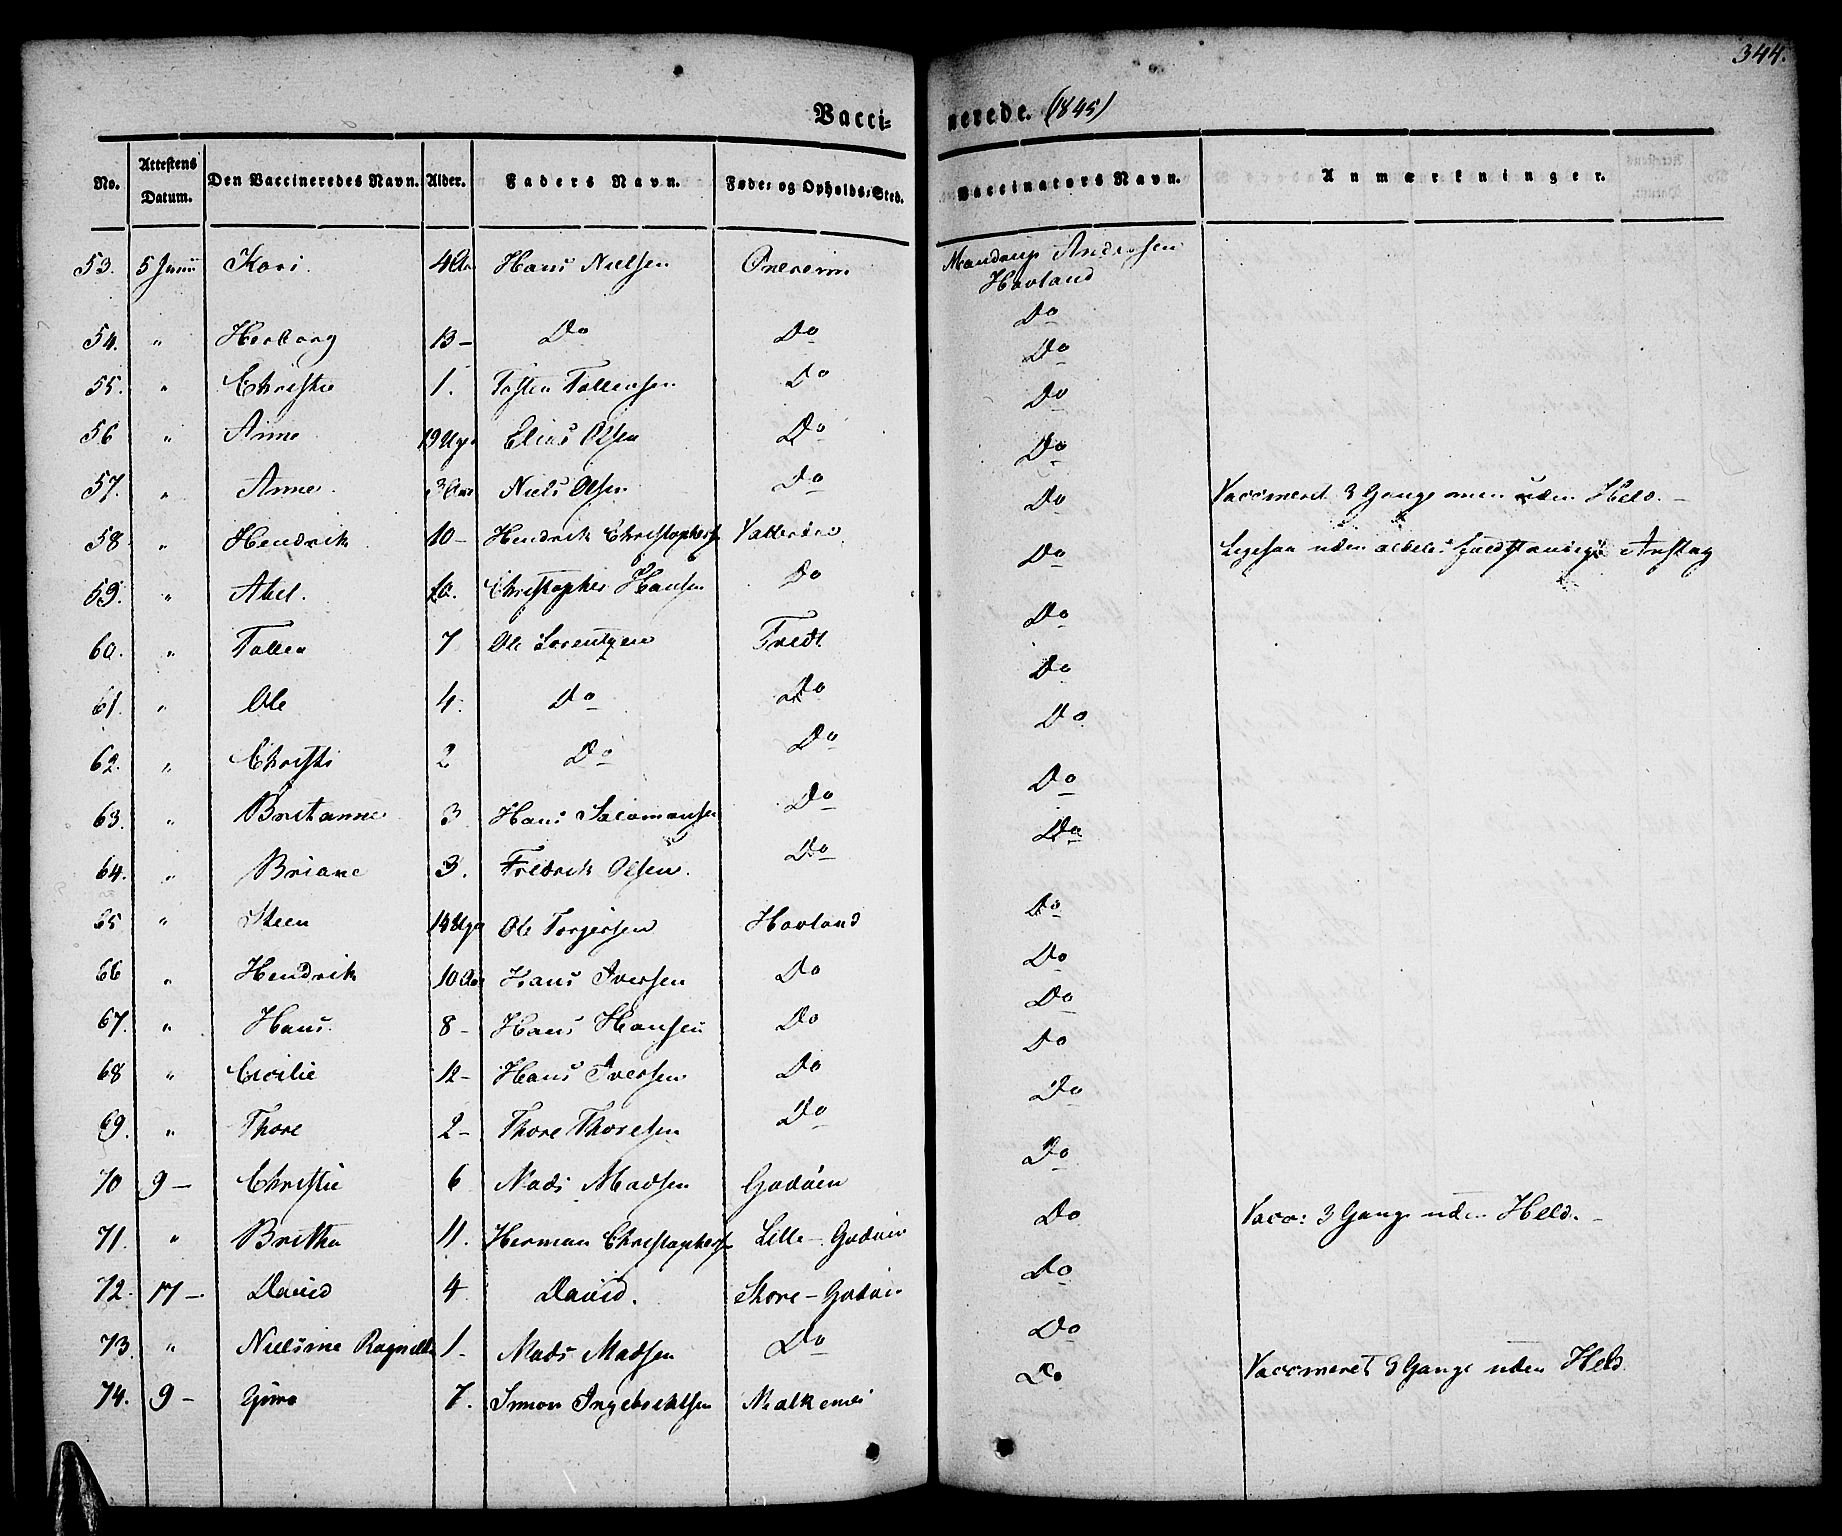 344.
Vacci-nerede. (1845)
No. Attestens Datum. Den Vaccineredes Navn. Alder. Faders Navn. Føde- og Opholds-Sted. Vaccinators Navn. Anmærkninger.
53. 5 Juni Kari. 4 Aar Hans Nielsen Mandrup Andersen Havland
54. " Herborg 13 – Do Do Do
55. " Christie 1. Tosten Tollensen Do Do
56 " Anne 19 Uger Elias Olsen Do Do
57. " Anne. 3 Aar Niels Olsen Do Do Vaccineret 3 Gange men uden Held. –
58 " Hendrik 10 – Hendrik Christophers. Do Ligesaa uden aldeles fuldstændigt Anslag
59. " Abel. 10. Christopher Hansen Do Do
60. " Tollen 7 Ole Lorentzen Tvedt Do
61. " Ole 4. Do Do Do
62. " Christi 2 Do Do Do
63. " Britanne 3 Hans Salamonsen Do Do
64. " Briane 3. Fredrik Olsen. Do Do
65 " Steen 14 Uger Ole Torgersen Havland Do
66 " Hendrik 10 Aar Hans Iversen Do Do
67. " Hans. 8 – Hans Hansen Do Do
68 " Cicilie 12 – Hans Iversen Do Do
69. " Thore 2 – Thore Thoresen Do Do
70 9 – Christie 6 Mads Madsen Godøen Do
71. " Britha 11. Herman Christophers. Lille – Godøen Do Vacc: 3 Gange uden Held. –
72. 17 – David 4 David. Store – Godøen Do
73. " Nielsine Ragnilde 1 – Mads Madsen Do Do Vaccineret 3 Gange uden Held.
74. 9 – 7. Simon Ingebrechtsen Do